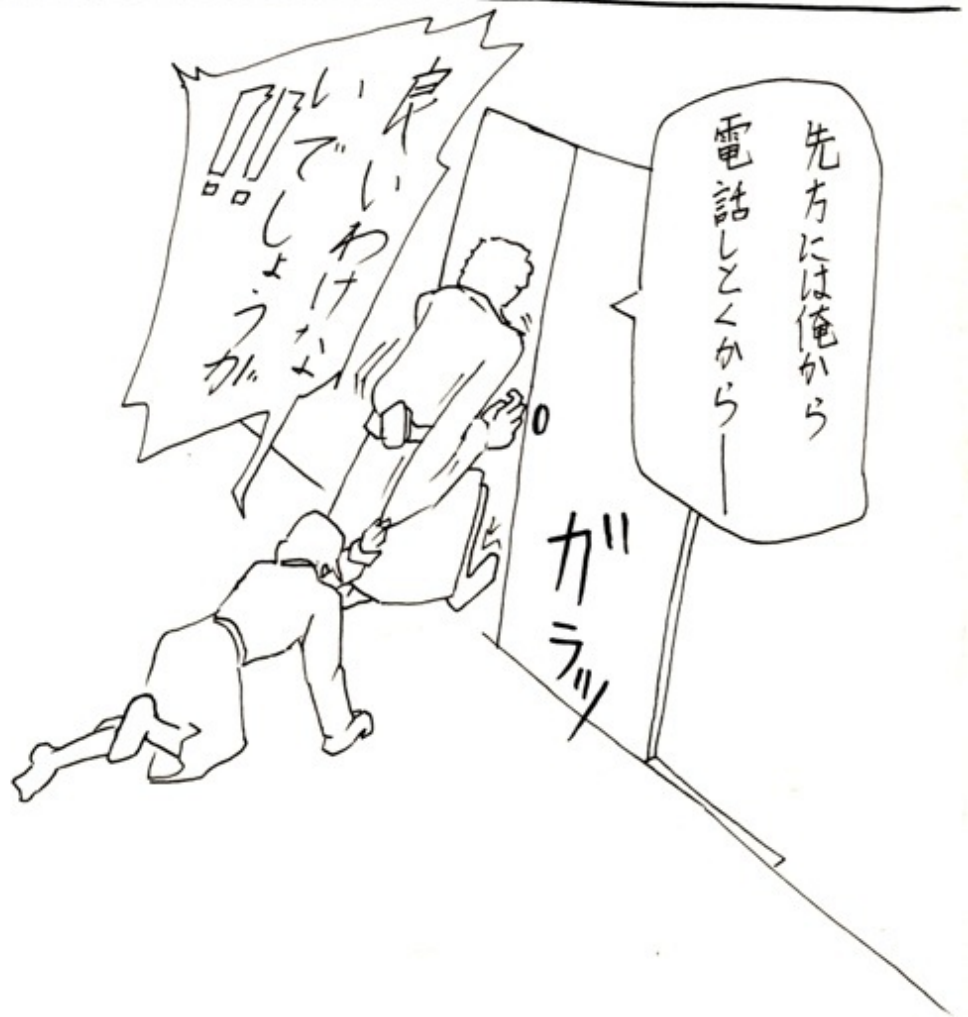 先方には俺から
電話しとくから―
良いわけな
いでしょうが
!!
ガラッ